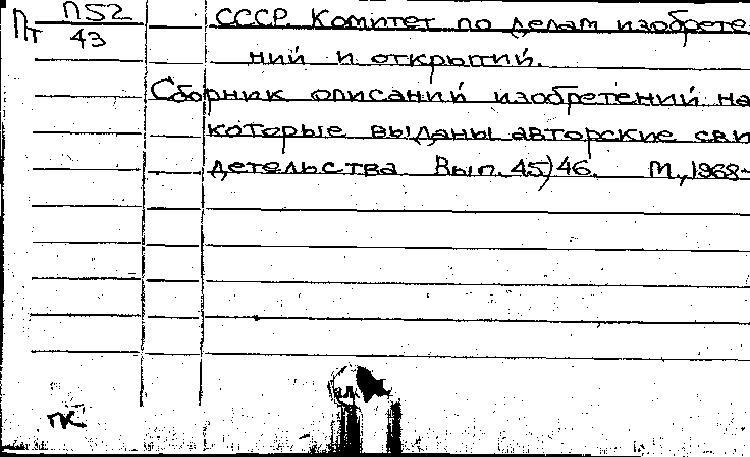 Пт П52
43
СССР. Комитет по делам изобрете
ний и открытий.
Сборник описаний изобретений, на
которые выданы авторские сви
детельства Вып. 45)46. М., 1968-
пк